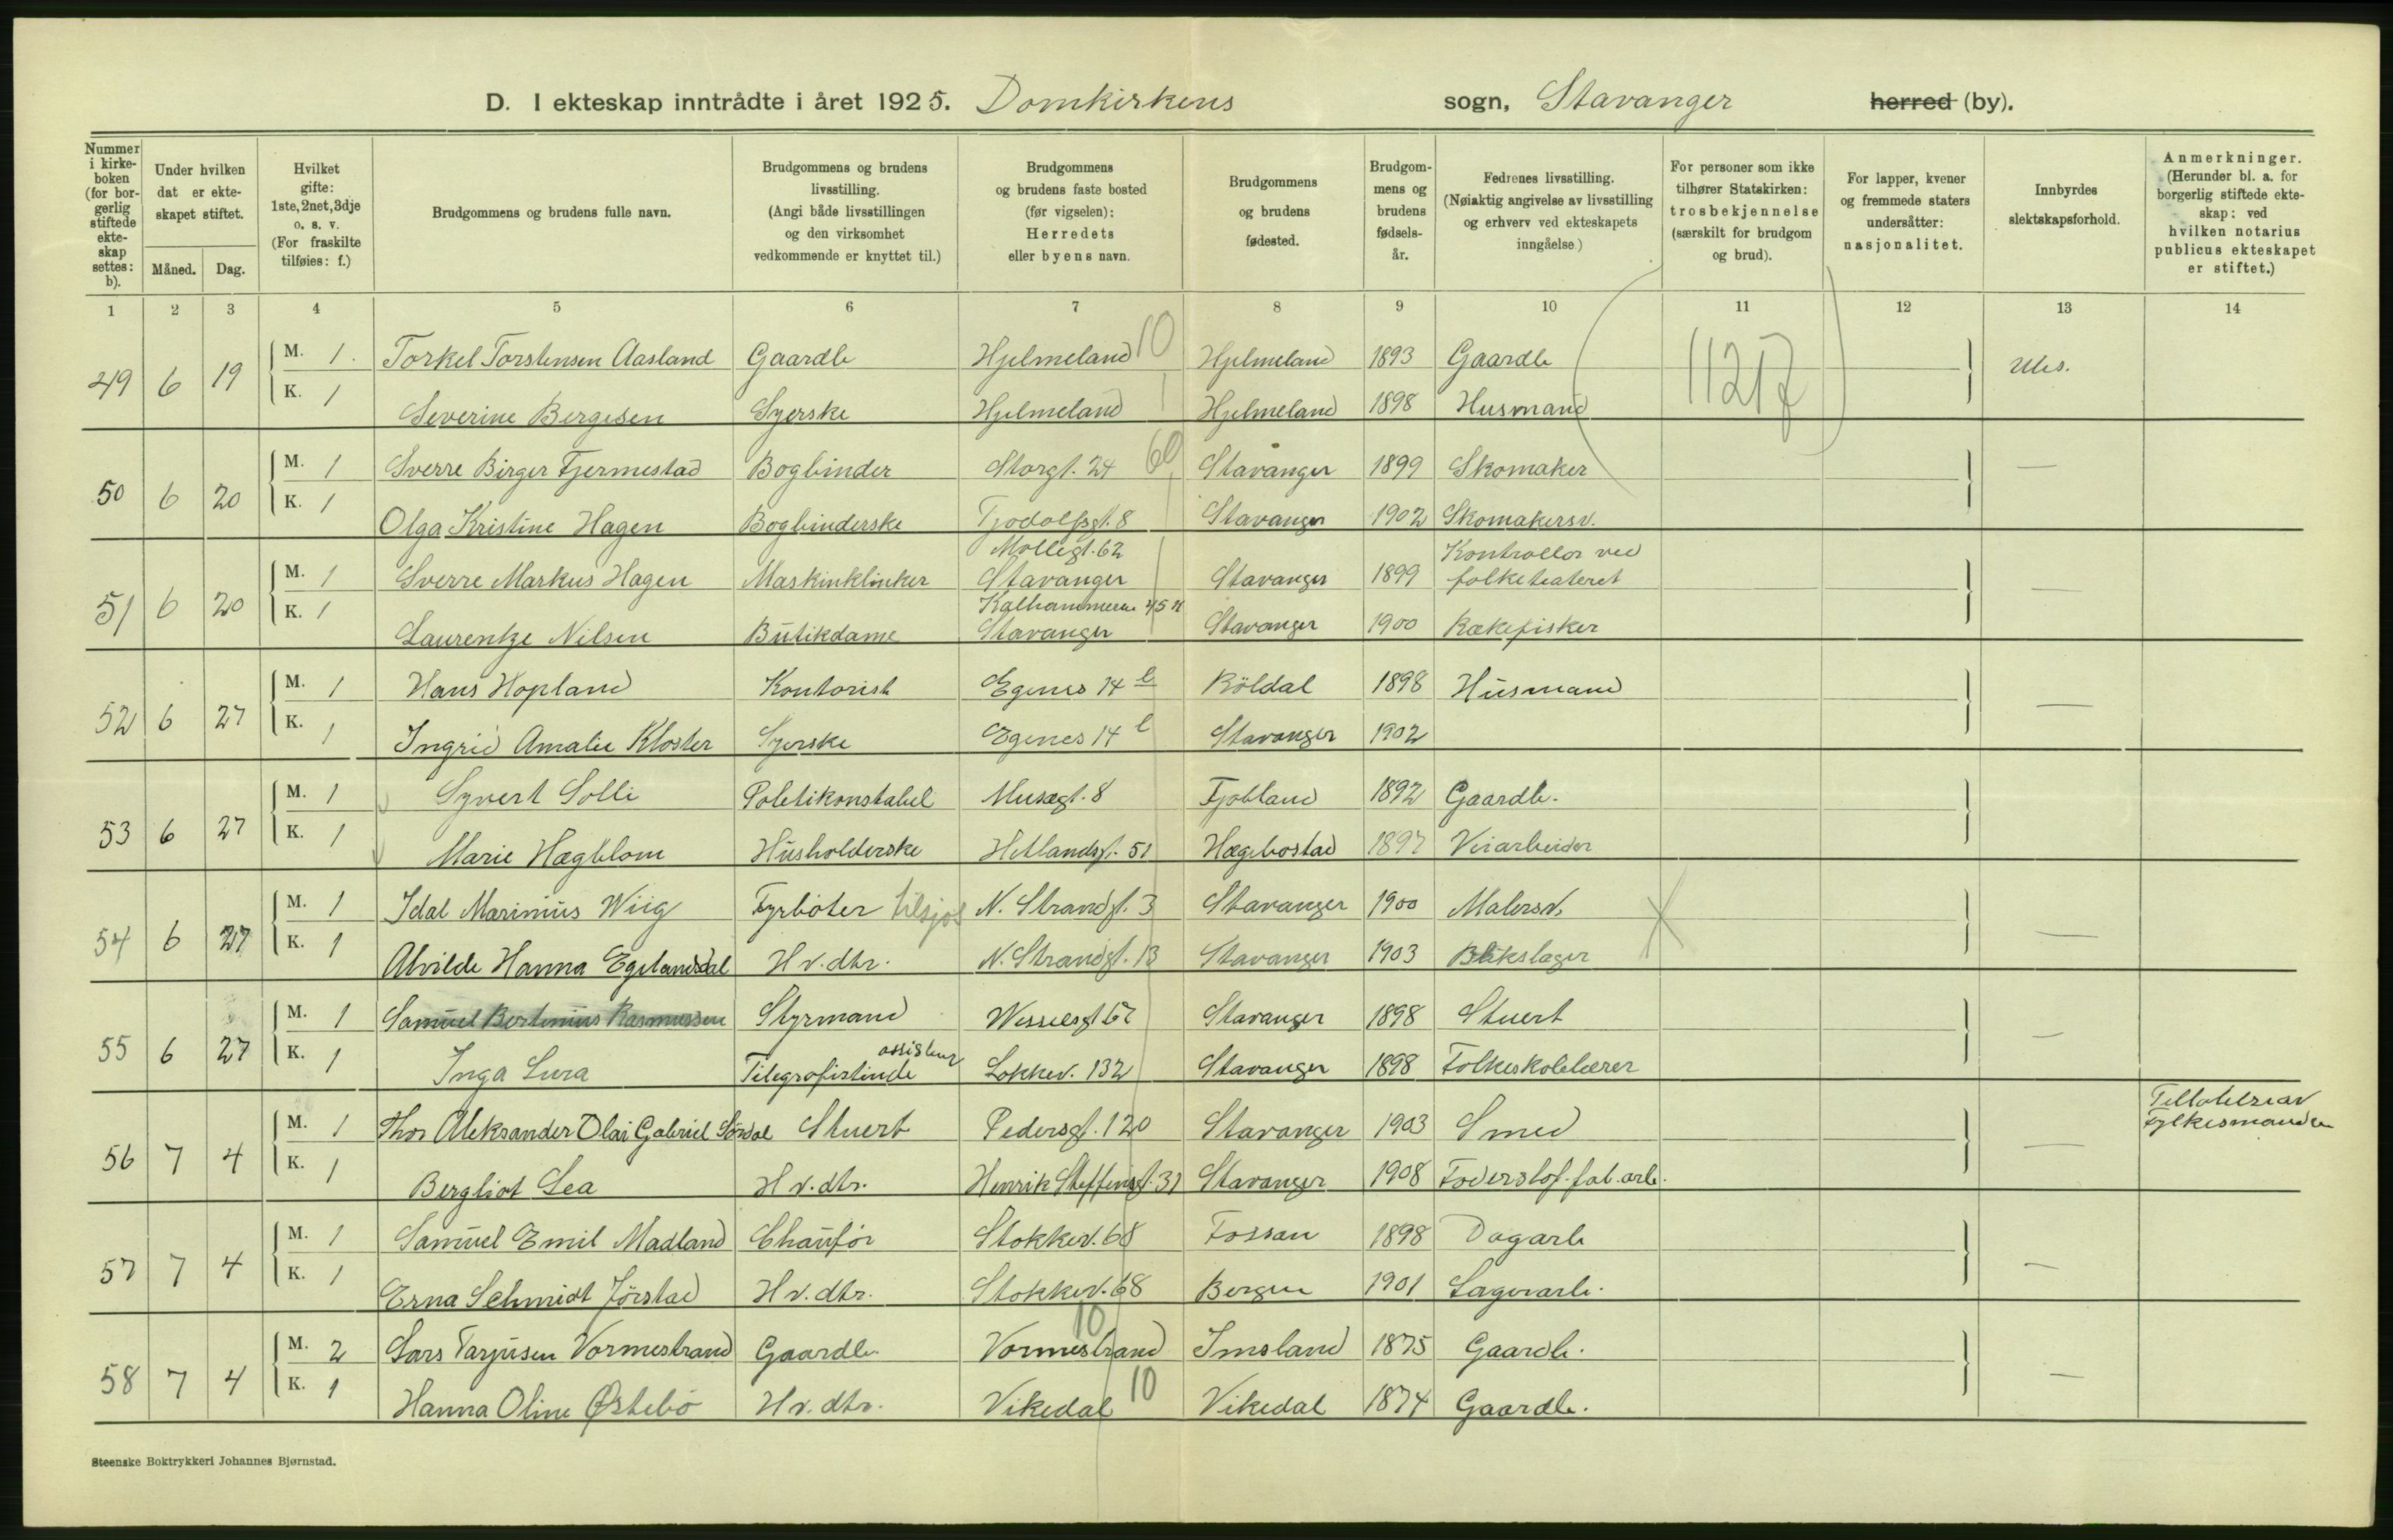 D. I ekteskap inntrådte i året 1925. Domkirkens sogn, Stavanger herred (by).
Nummer i kirkeboken (for borgerlig stiftede ekteskap settes: b).
Under hvilken dat er ekteskapet stiftet.
Måned. Dag.
Hvilket gifte: 1ste, 2net, 3dje o. s. v. (For fraskilte tilføies: f.)
Brudgommens og brudens fulle navn.
Brudgommens og brudens livsstilling. (Angi både livsstillingen og den virksomhet vedkommende er knyttet til.)
Brudgommens og brudens faste bosted (før vigselen): Herredets eller byens navn.
Brudgommens og brudens fødested.
Brudgommens og brudens fødselsår.
Fedrenes livsstilling. (Nøiaktig angivelse av livsstilling og erhverv ved ekteskapets inngåelse.)
For personer som ikke tilhører Statskirken: trosbekjennelse (særskilt for brudgom og brud).
For lapper, kvener og fremmede staters undersåtter: nasjonalitet.
Innbyrdes slektskapsforhold.
Anmerkninger. (Herunder bl. a. for borgerlig stiftede ekteskap: ved hvilken notarius publicus ekteskapet er stiftet.)
1 2 3 4 5 6 7 8 9 10 11 12 13 14
49 6 19 M. 1. Torkel Torstensen Aasland Gaardb Hjelmeland 10 Hjelmeland 1893 Gaardb
K. 1 Severine Bergesen Syerske Hjelmeland Hjelmeland 1898 Husmand
50 6 20 M. 1 Sverre Birger Fjermestad Bogbinder Storgt. 24 60 Stavanger 1899 Skomaker —
K. 1 Olga Kristine Hagen Bogbinderske Tjodolfsgt. 8 Stavanger 1902 Skomakersv.
51 6 20 M. 1 Sverre Markus Hagen Maskinklinker Møllegt. 62 Stavanger Stavanger 1899 Kontrollør ved folketeateret —
K. 1 Laurentze Nilsen Butikdame Kalhammeren 45 Stavanger Stavanger 1900 Rækefisker
52 6 27 M. 1 Hans Hopland Kontorist Egenes 14 b Röldal 1898 Husmand —
K. 1 Ingrid Amalie Kloster Syerske Egenes 14 b Stavanger 1902
53 6 27 M. 1 Syvert Solli Politikonstabel Musægt. 8 Fjotland 1892 Gaardb.
K. 1 Marie Hægblom Husholderske Hetlandsgt. 51 Hægebostad 1897 Veiarbeider
54 6 27 M. 1 Idal Marinius Wiig Fyrböter tilsjøs N. Strandgt. 3 Stavanger 1900 Malersv. —
K. 1 Alvilde Hanna Egelandsdal H v. dtr. N. Strandgt. 13 Stavanger 1903 Blikslager
55 6 27 M. 1 Samuel Bertinius Rasmussen Styrmand Wesselsgt 67 Stavanger 1898 Stuert —
K. 1 Inga Lura Telegrafistinde assistent Lokkev. 132 Stavanger 1898 Folkeskolelærer
56 7 4 M. 1 Thor Aleksander Olai Gabriel Sördal Stuert Pedersgt. 120 Stavanger 1903 Smed —
K. 1 Bergliot Lea H v. dtr. Henrik Steffensgt. 31 Stavanger 1908 Foderstof. fab. arb. Fylkesmanden
57 7 4 M. 1 Samuel Emil Madland Chaufför Stokkev. 68 Fossan 1898 Dagarb —
K. 1 Erna Schmidt Jörstad H v. dtr. Stokkev. 68 Bergen 1901 Lagerarb.
58 7 4 M. 2 Lars Tarjusen Vormestrand Gaardb. Vormestrand 10 Imsland 1875 Gaardb. —
K. 1 Hanna Oline Østebö H v. dtr. Vikedal 10 Vikedal 1874 Gaardb.
Steenske Boktrykkeri Johannes Bjørnstad.